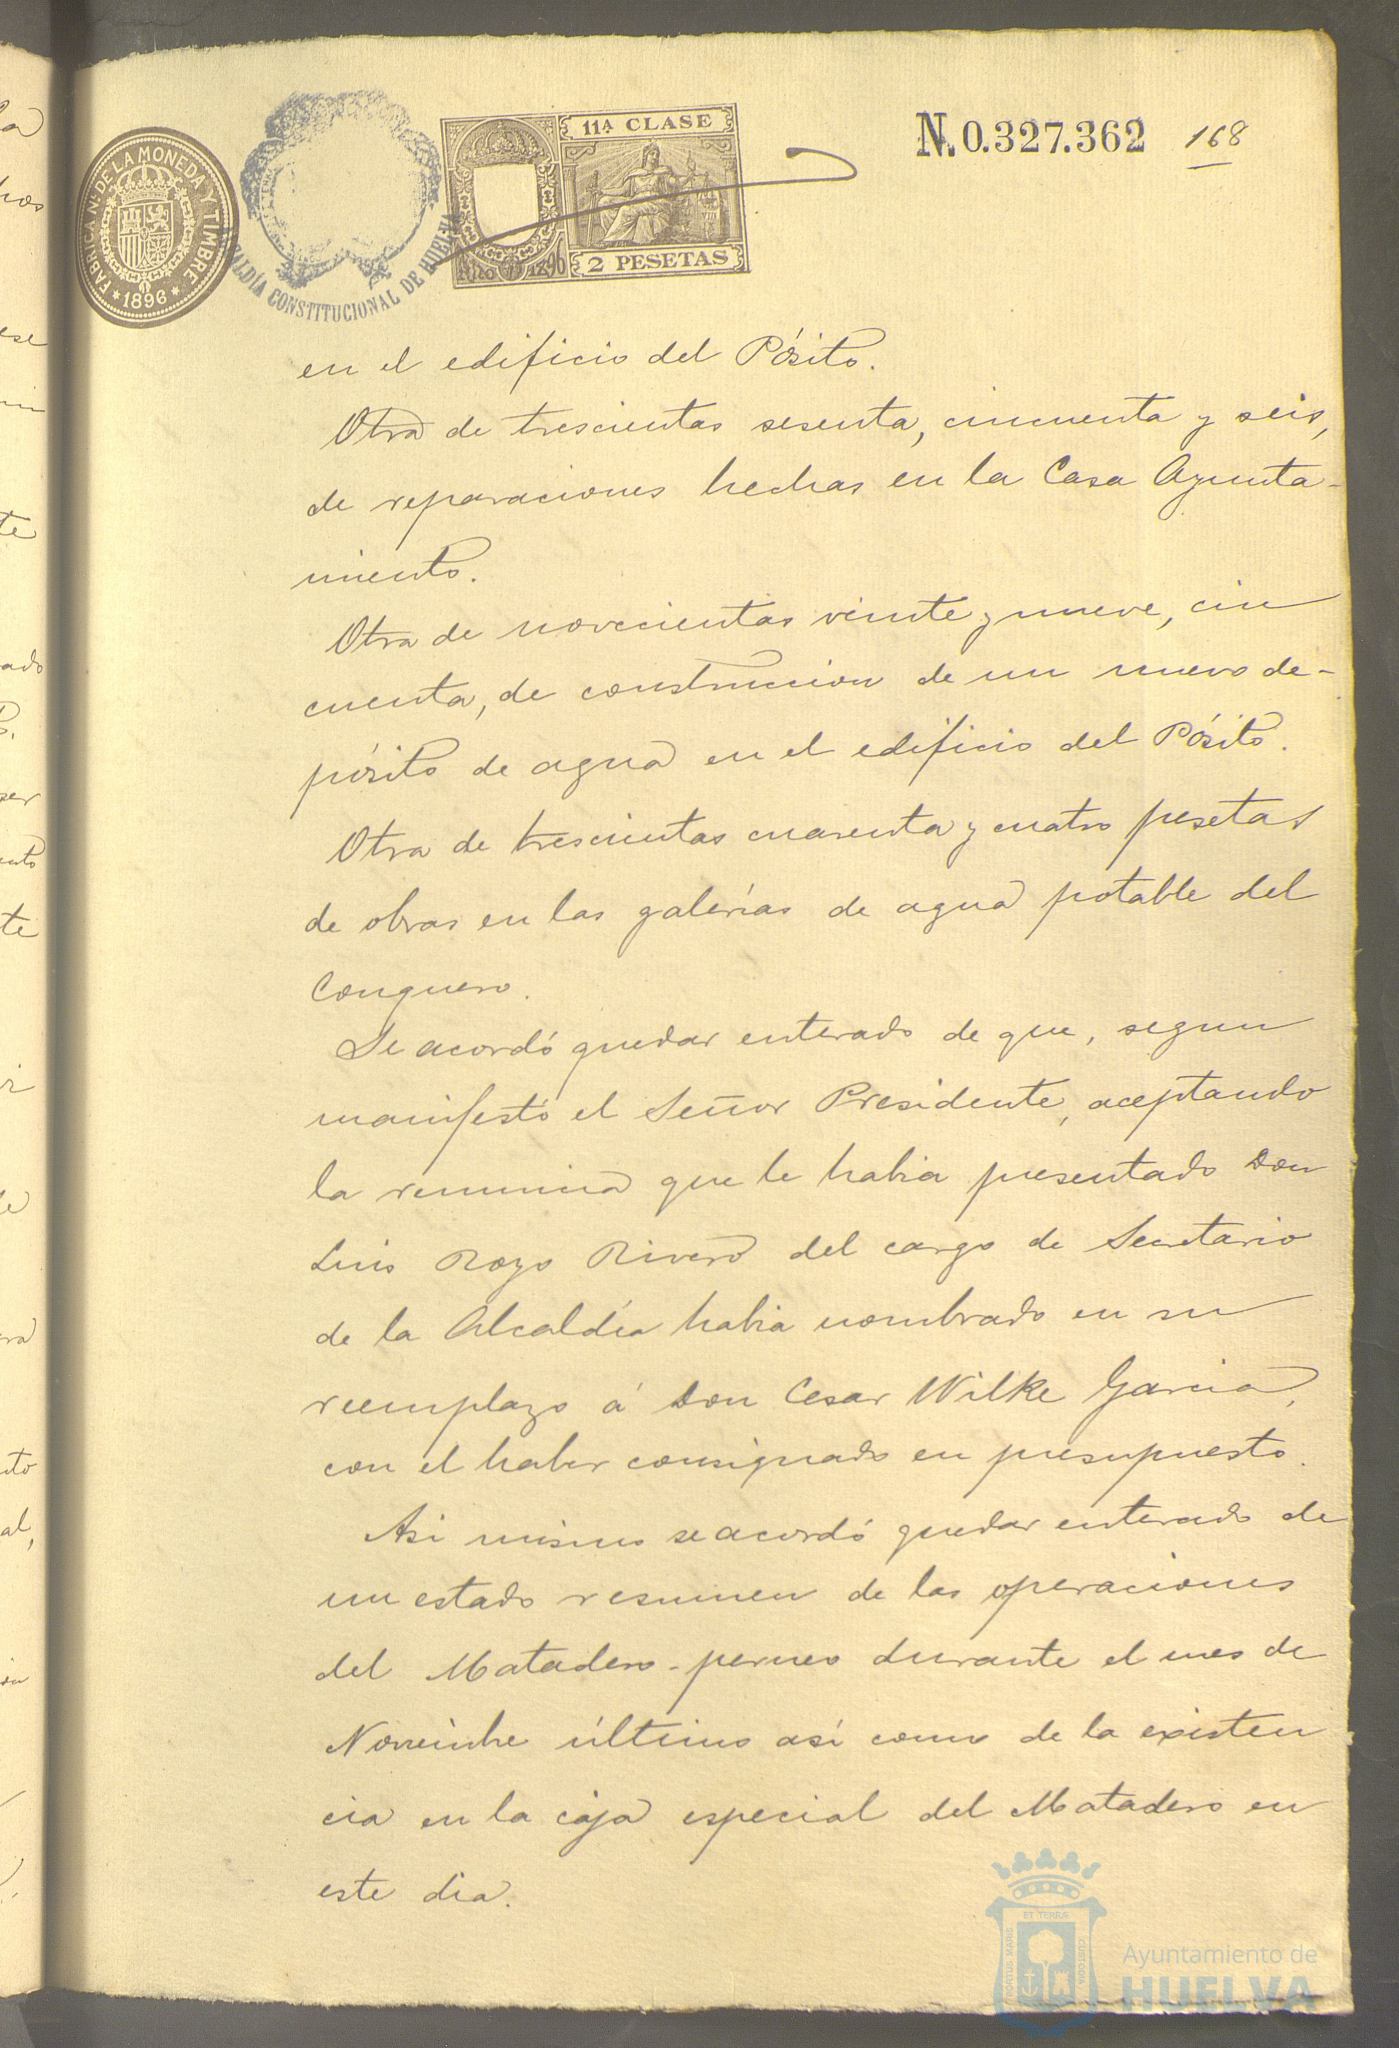 FABRICA Nl. DE LA MONEDA Y TIMBRE
* 1896 *
ALDÍA CONSTITUCIONAL DE HUELVA
11A CLASE
1896
2 PESETAS
N. 0.327.362
168
en el edificio del Pósito.
Otra de trescientas sesenta, cincuenta y seis,
de reparaciones hechas en la Casa Ayunta-
miento.
Otra de novecientas veinte y nueve, cin
cuenta, de construccion de un nuevo de-
pósito de agua en el edificio del Pósito.
Otra de trescientas cuarenta y cuatro pesetas
de obras en las galerías de agua potable del
Conquero.
Se acordó quedar enterado de que, segun
manifestó el Señor Presidente, aceptando
la renuncia que le habia presentado Don
Luis Rozo Rivero del cargo de Secretario
de la Alcaldía habia nombrado en su
reemplazo á Don Cesar Wilke Garcia,
con el haber consignado en presupuesto.
Asi mismo se acordó quedar enterado de
un estado resumen de las operaciones
del Matadero-perneo durante el mes de
Noviembre último así como de la existen
cia en la caja especial del Matadero en
este dia.
PORTUS MARIS
ET TERRÆ
CUSTODIA
Ayuntamiento de
HUELVA